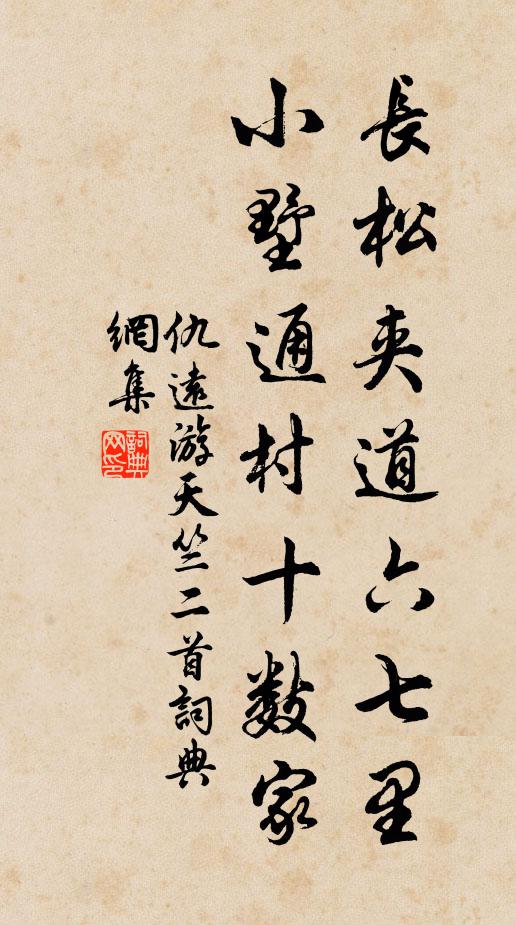 長松夾道六七里
小墅通村十数家
仇遠游天竺二首詞典
網集
詞典
网印